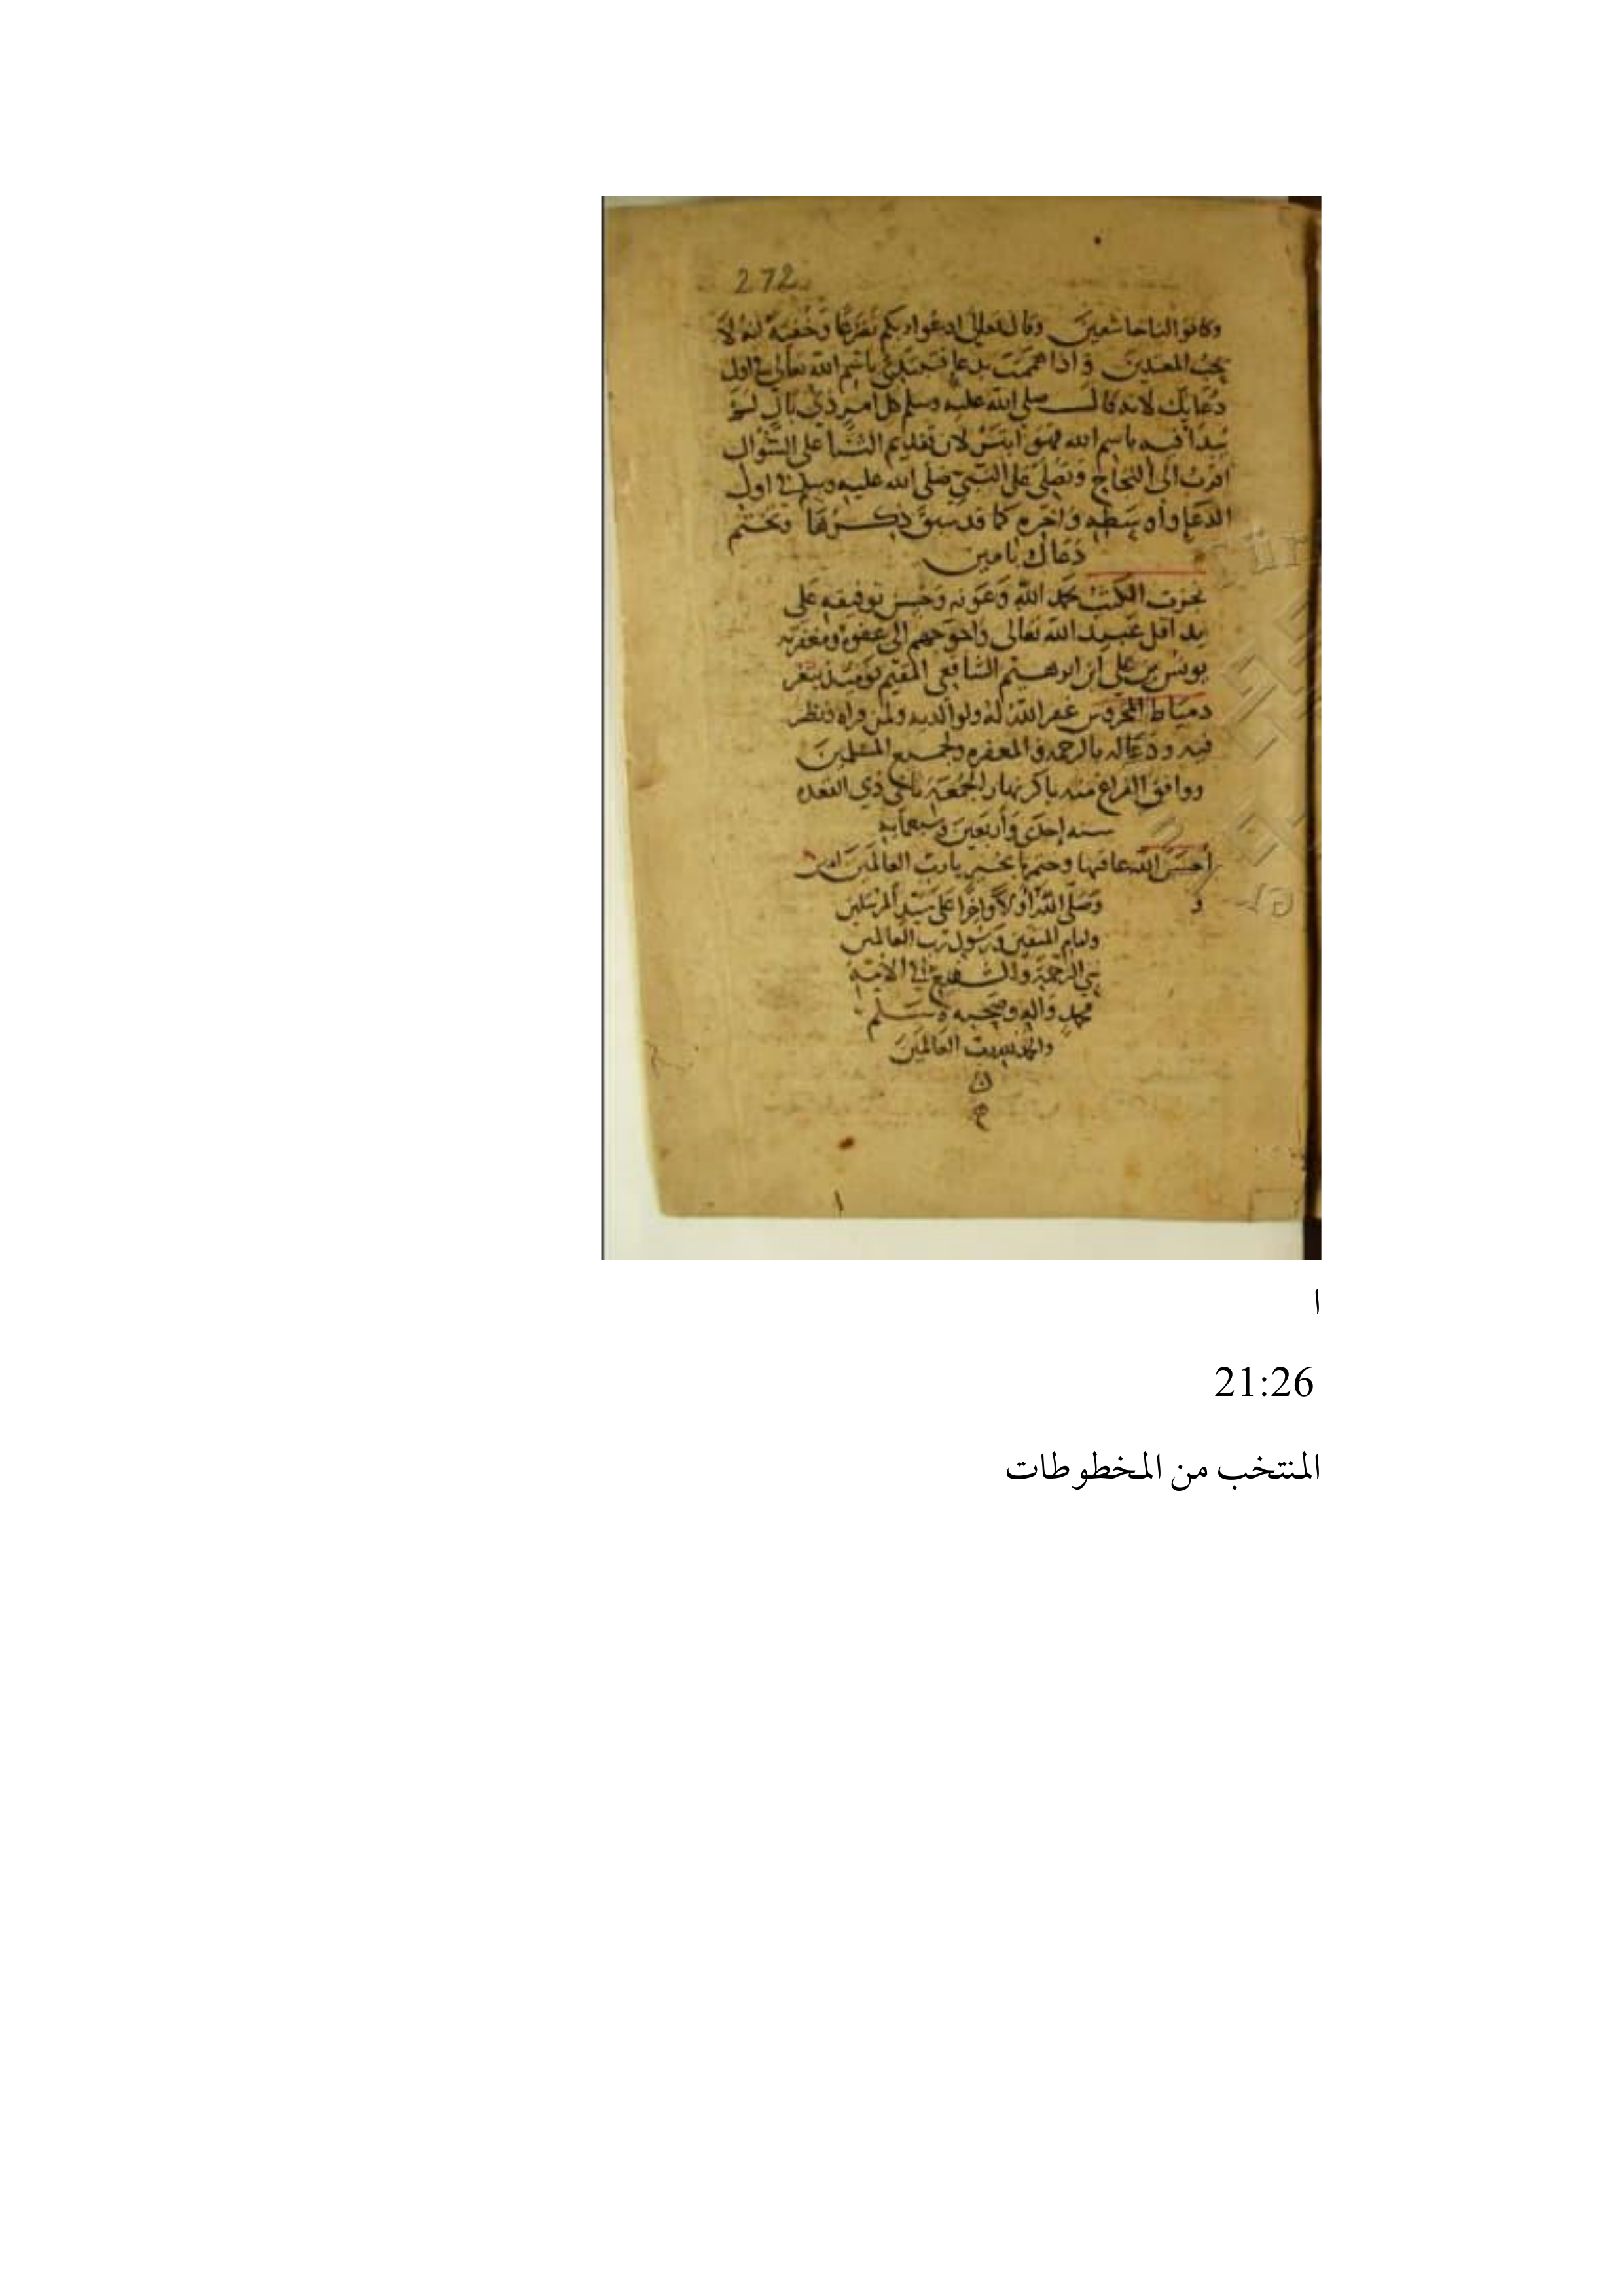 272
وكانوا لنا خاشعين وقال تعالى ادعوا ربكم تضرعا وخفية انه لا
يحب المعتدين واذا هممت بدعا فتبتدئ باسم الله تعالى في اول
دعايك لانه قال صلى الله عليه وسلم كل امر ذي بال لم
يبدا فيه باسم الله فهو ابتر لان تقديم الثنا على السؤال
اقرب الى النجاح وتصلي على النبي صلى الله عليه وسلم في اول
الدعا واوسطه واخره كما قد سبق وتختم
دعاك بامين
نجزت الكتب بحمد الله وعونه وحسن توفيقه على
يد اقل عبيد الله تعالى واحوجهم الى عفوه ومغفرته
يونس بن علي ابن ابرهيم الشافعي المقيم يوميذ بثغر
دمياط المحروس غفر الله له ولوالديه ولمن قراه ونظر
فيه ودعا له بالرحمه والمغفره ولجميع المسلمين
ووافق الفراغ منه باكر نهار الجمعة ذي القعده
سنه احدى واربعين وسبعمايه
احسن الله عاقبتها وختمها بخير يا رب العالمين امين
وصلى الله اولا واخرا على سيد المرسلين
وامام المتقين ورسول رب العالمين
نبي الرحمة والشفيع في الامة
محمد واله وصحبه وسلم
والحمد لله رب العالمين
ا
21:26
المنتخب من المخطوطات